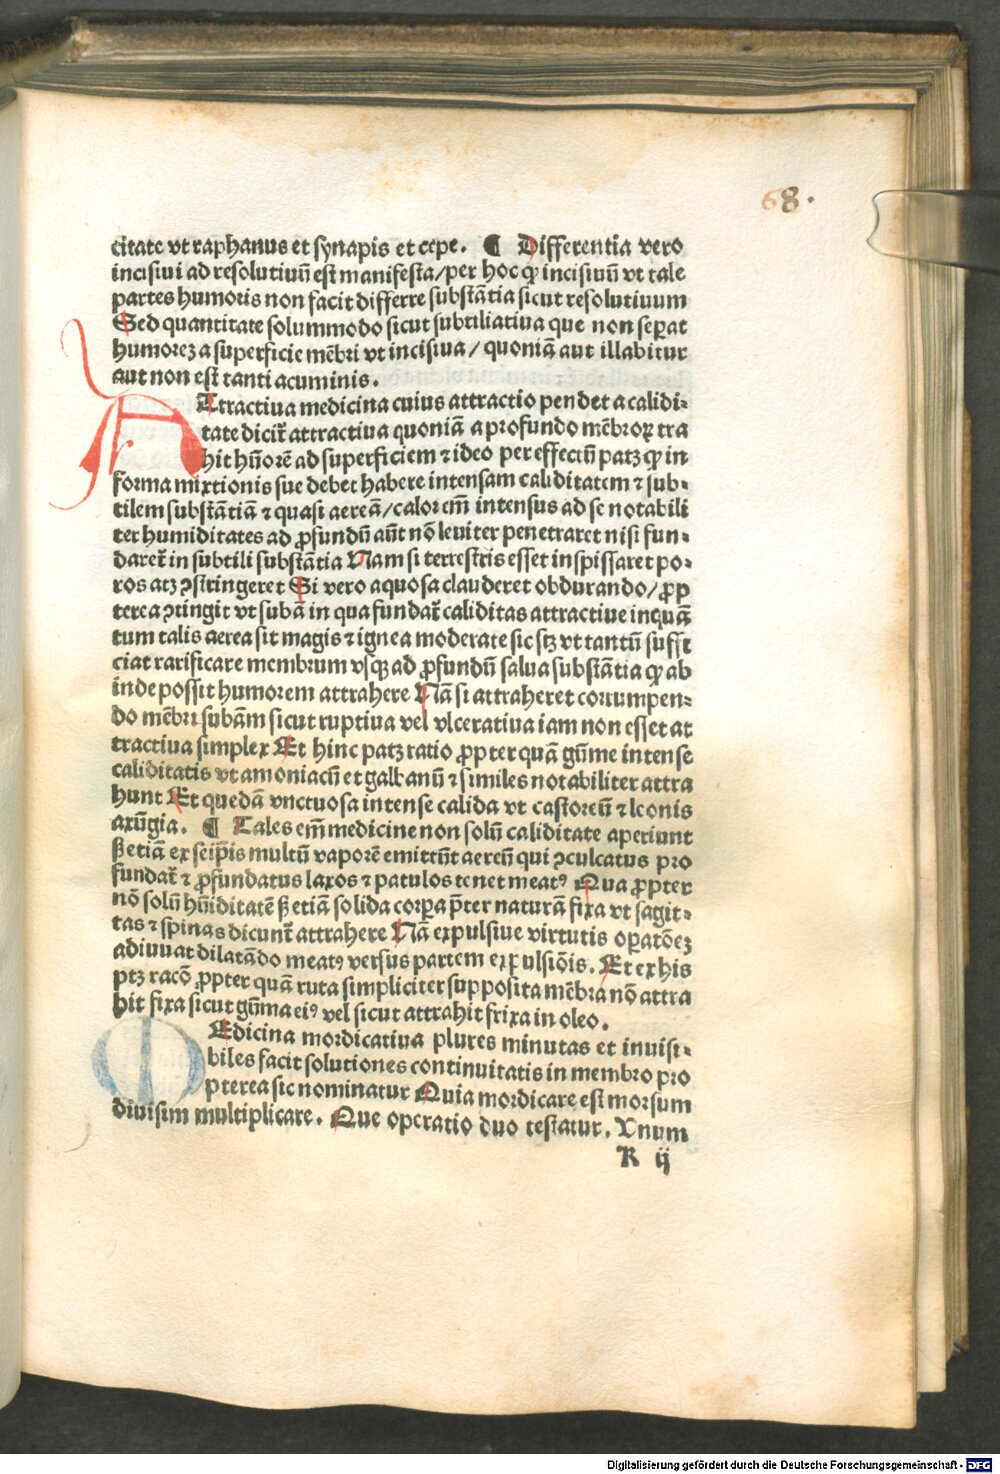 68.
citate vt raphanus et synapis et cepe. ¶ Differentia vero
incisiui ad resolutiuū est manifesta/per hoc ꝙ incisiuū vt tale
partes humoris non facit differre substātia sicut resolutiuum
Sed quantitate solummodo sicut subtiliatiua que non sepat
humorez a superficie mēbri vt incisiua/quoniā aut illabitur
aut non est tanti acuminis.
Attractiua medicina cuius attractio pendet a calidi⸗
tate dicit̄ attractiua quoniā a profundo mēbroꝝ tra
hit hūorē ad superficiem ⁊ ideo per effectū patꝫ ꝙ in
forma mixtionis sue debet habere intensam caliditatem ⁊ sub⸗
tilem substātiā ⁊ quasi aereā/calor em̄ intensus ad se notabili
ter humiditates ad ꝓfundū aūt nō leuiter penetraret nisi fun⸗
daret̄ in subtili substātia Nam si terrestris esset inspissaret po⸗
ros atꝫ ↄstringeret Si vero aquosa clauderet obdurando/ꝓp
terea ↄtingit vt subā in qua fundat̄ caliditas attractiue inquā
tum talis aerea sit magis ⁊ ignea moderate sic sꝫ vt tantū suffi
ciat rarificare membrum vsqꝫ ad ꝓfundū salua substātia ꝙ ab
inde possit humorem attrahere Nā si attraheret corrumpen⸗
do mēbri subām sicut ruptiua vel vlceratiua iam non esset at
tractiua simplex Et hinc patꝫ ratio ꝓpter quā gūme intense
caliditatis vt amoniacū et galbanū ⁊ similes notabiliter attra
hunt Et quedā vnctuosa intense calida vt castoreū ⁊ leonis
axūgia. ¶ Tales em̄ medicine non solū caliditate aperiunt
ß etiam ex seip̄is multū vaporē emittūt aereū qui ↄculcatus pro
fundat̄ ⁊ ꝓfundatus laxos ⁊ patulos tenet meatꝰ Qua ꝓpter
nō solū hūiditatē ß etiam solida corpa p̄ter naturā fixa vt sagit⸗
tas ⁊ spinas dicunt̄ attrahere Nā expulsiue virtutis opatōez
adiuuat dilatādo meatꝰ versus partem expulsiōis. Et ex his
ptꝫ racō ꝓpter quam ruta simpliciter supposita mēbra nō attra
hit fixa sicut gūma eiꝰ vel sicut attrahit frixa in oleo.
MEdicina mordicatiua plures minutas et inuisi⸗
biles facit solutiones continuitatis in membro pro
pterea sic nominatur Quia mordicare est morsum
diuisim multiplicare. Que operatio duo testatur. Vnum
K ij
Digitalisierung gefördert durch die Deutsche Forschungsgemeinschaft - DFG